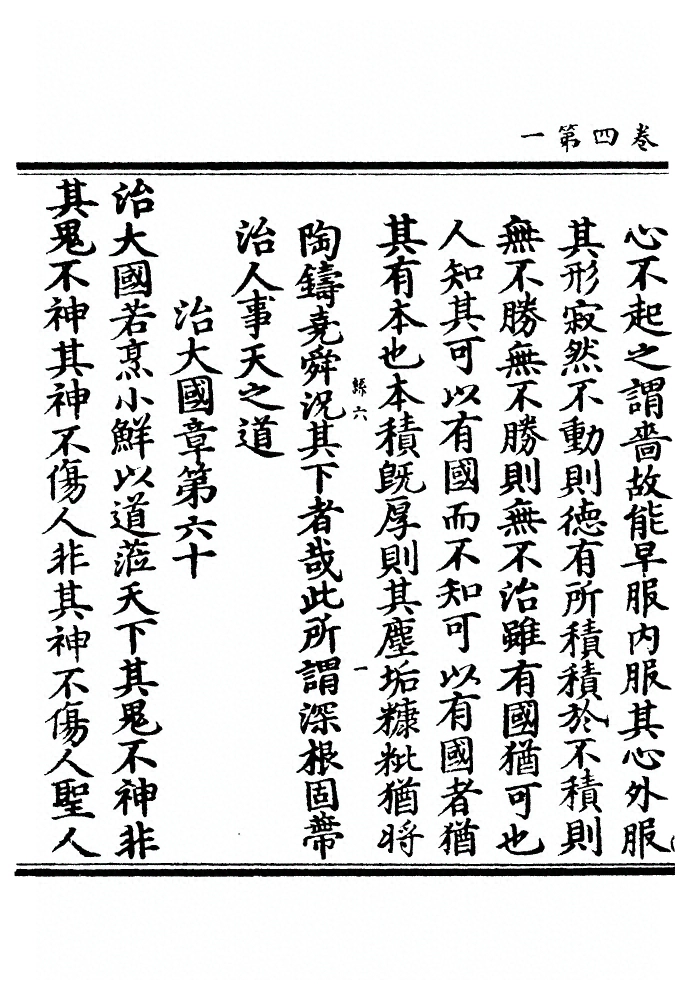 卷四第一
心不起之謂嗇故能早服内服其心外服
其形寂然不動則德有所積積於不積則
無不勝無不勝則無不治雖有國猶可也
人知其可以有國而不知可以有國者猶
其有本也本積旣厚則其塵垢糠粃猶將
縣六
一
陶鑄堯舜況其下者哉此所謂深根固蔕
治人事天之道
治大國章第六十
治大國若烹小鮮以道蒞天下其鬼不神非
其鬼不神其神不傷人非其神不傷人聖人